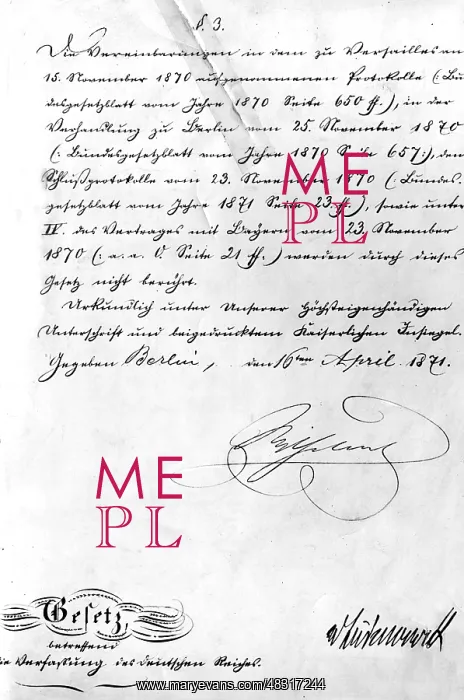 §. 3.
Die Vereinbarungen in dem zu Versailles am
15. November 1870 aufgenommenen Protokolle (:Bun
desgesetzblatt vom Jahre 1870 Seite 650 ff.:), in der
Verhandlung zu Berlin vom 25. November 1870
(:Bundesgesetzblatt vom Jahre 1870 Seite 657:), dem
Schlußprotokolle vom 23. November 1870 (:Bundes-
gesetzblatt vom Jahre 1871 Seite 23 ff.:), sowie unter
IV. des Vertrages mit Bayern vom 23. November
1870 (:a. a. O. Seite 21 ff.:) werden durch dieses
Gesetz nicht berührt.
Urkundlich unter Unserer Höchsteigenhändigen
Unterschrift und beigedrucktem Kaiserlichen Insiegel.
Gegeben Berlin, den 16ten April 1871.
Wilhelm
ME
PL
ME
PL
Gesetz,
betreffend
die Verfassung des deutschen Reiches.
v Bismarck
www.maryevans.com/48917244